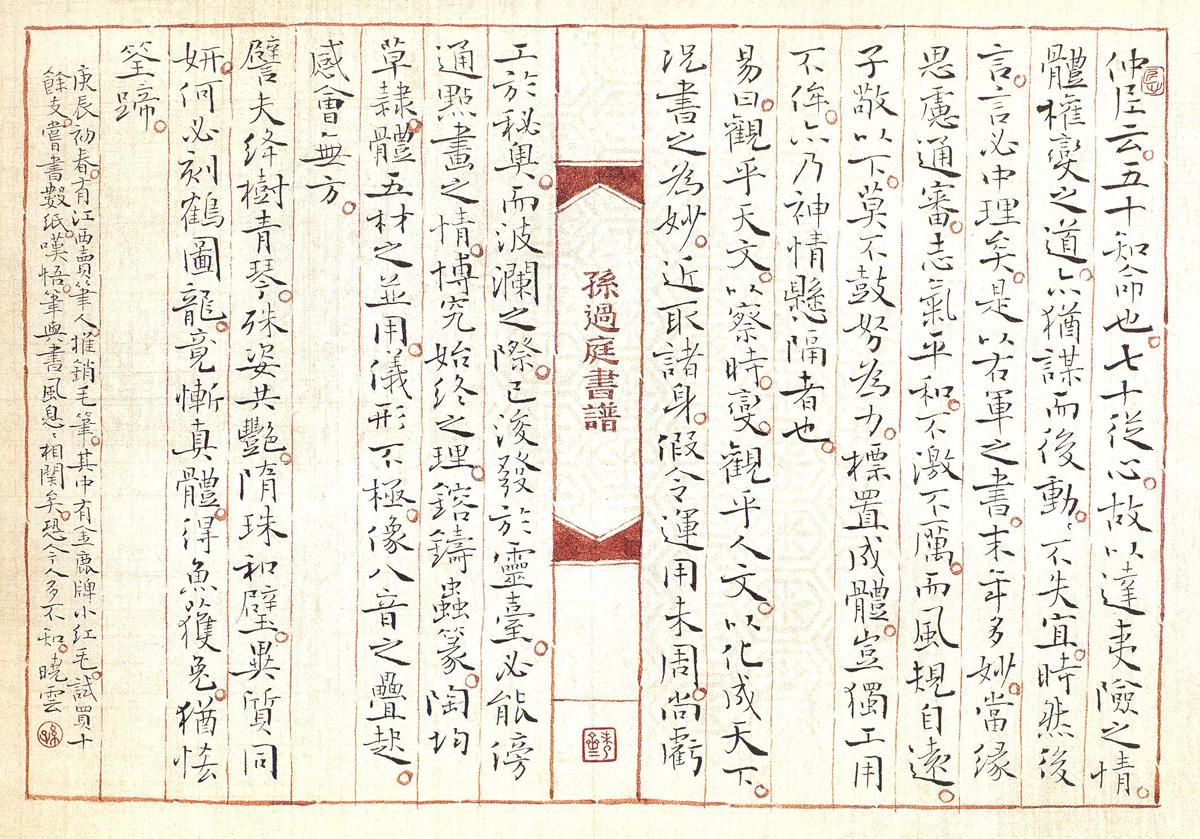 仲尼云。五十知命也。七十從心。故以達夷險之情。
體權變之道。亦猶謀而後動。〻不失宜。時然後
言。言必中理矣。是以右軍之書。末年多妙。當緣
思慮通審。志氣平和。不激不厲。而風規自遠。
子敬以下。莫不鼓努為力。標置成體。豈獨工用
不侔。亦乃神情懸隔者也。
易曰。觀乎天文。以察時變。觀乎人文。以化成天下。
況書之為妙。近取諸身。假令運用未周。尚虧
孫過庭書譜
工於秘奧。而波瀾之際。已浚發於靈臺。必能傍
通點畫之情。博究始終之理。鎔鑄蟲篆。陶均
草隸。體五材之並用。儀形不極。像八音之疊起。
感會無方。
譬夫絳樹青琴。殊姿共艷。隋珠和璧。異質同
妍。何必刻鶴圖龍。竟慚真體。得魚獲兔。猶恡
筌蹄。
庚辰初春。有江西賣筆人。推銷毛筆。其中有金鹿牌小紅毛。試買十
餘支。嘗書數紙。嘆悟。筆與書風息〻相関矣。恐今人多不知。曉雲